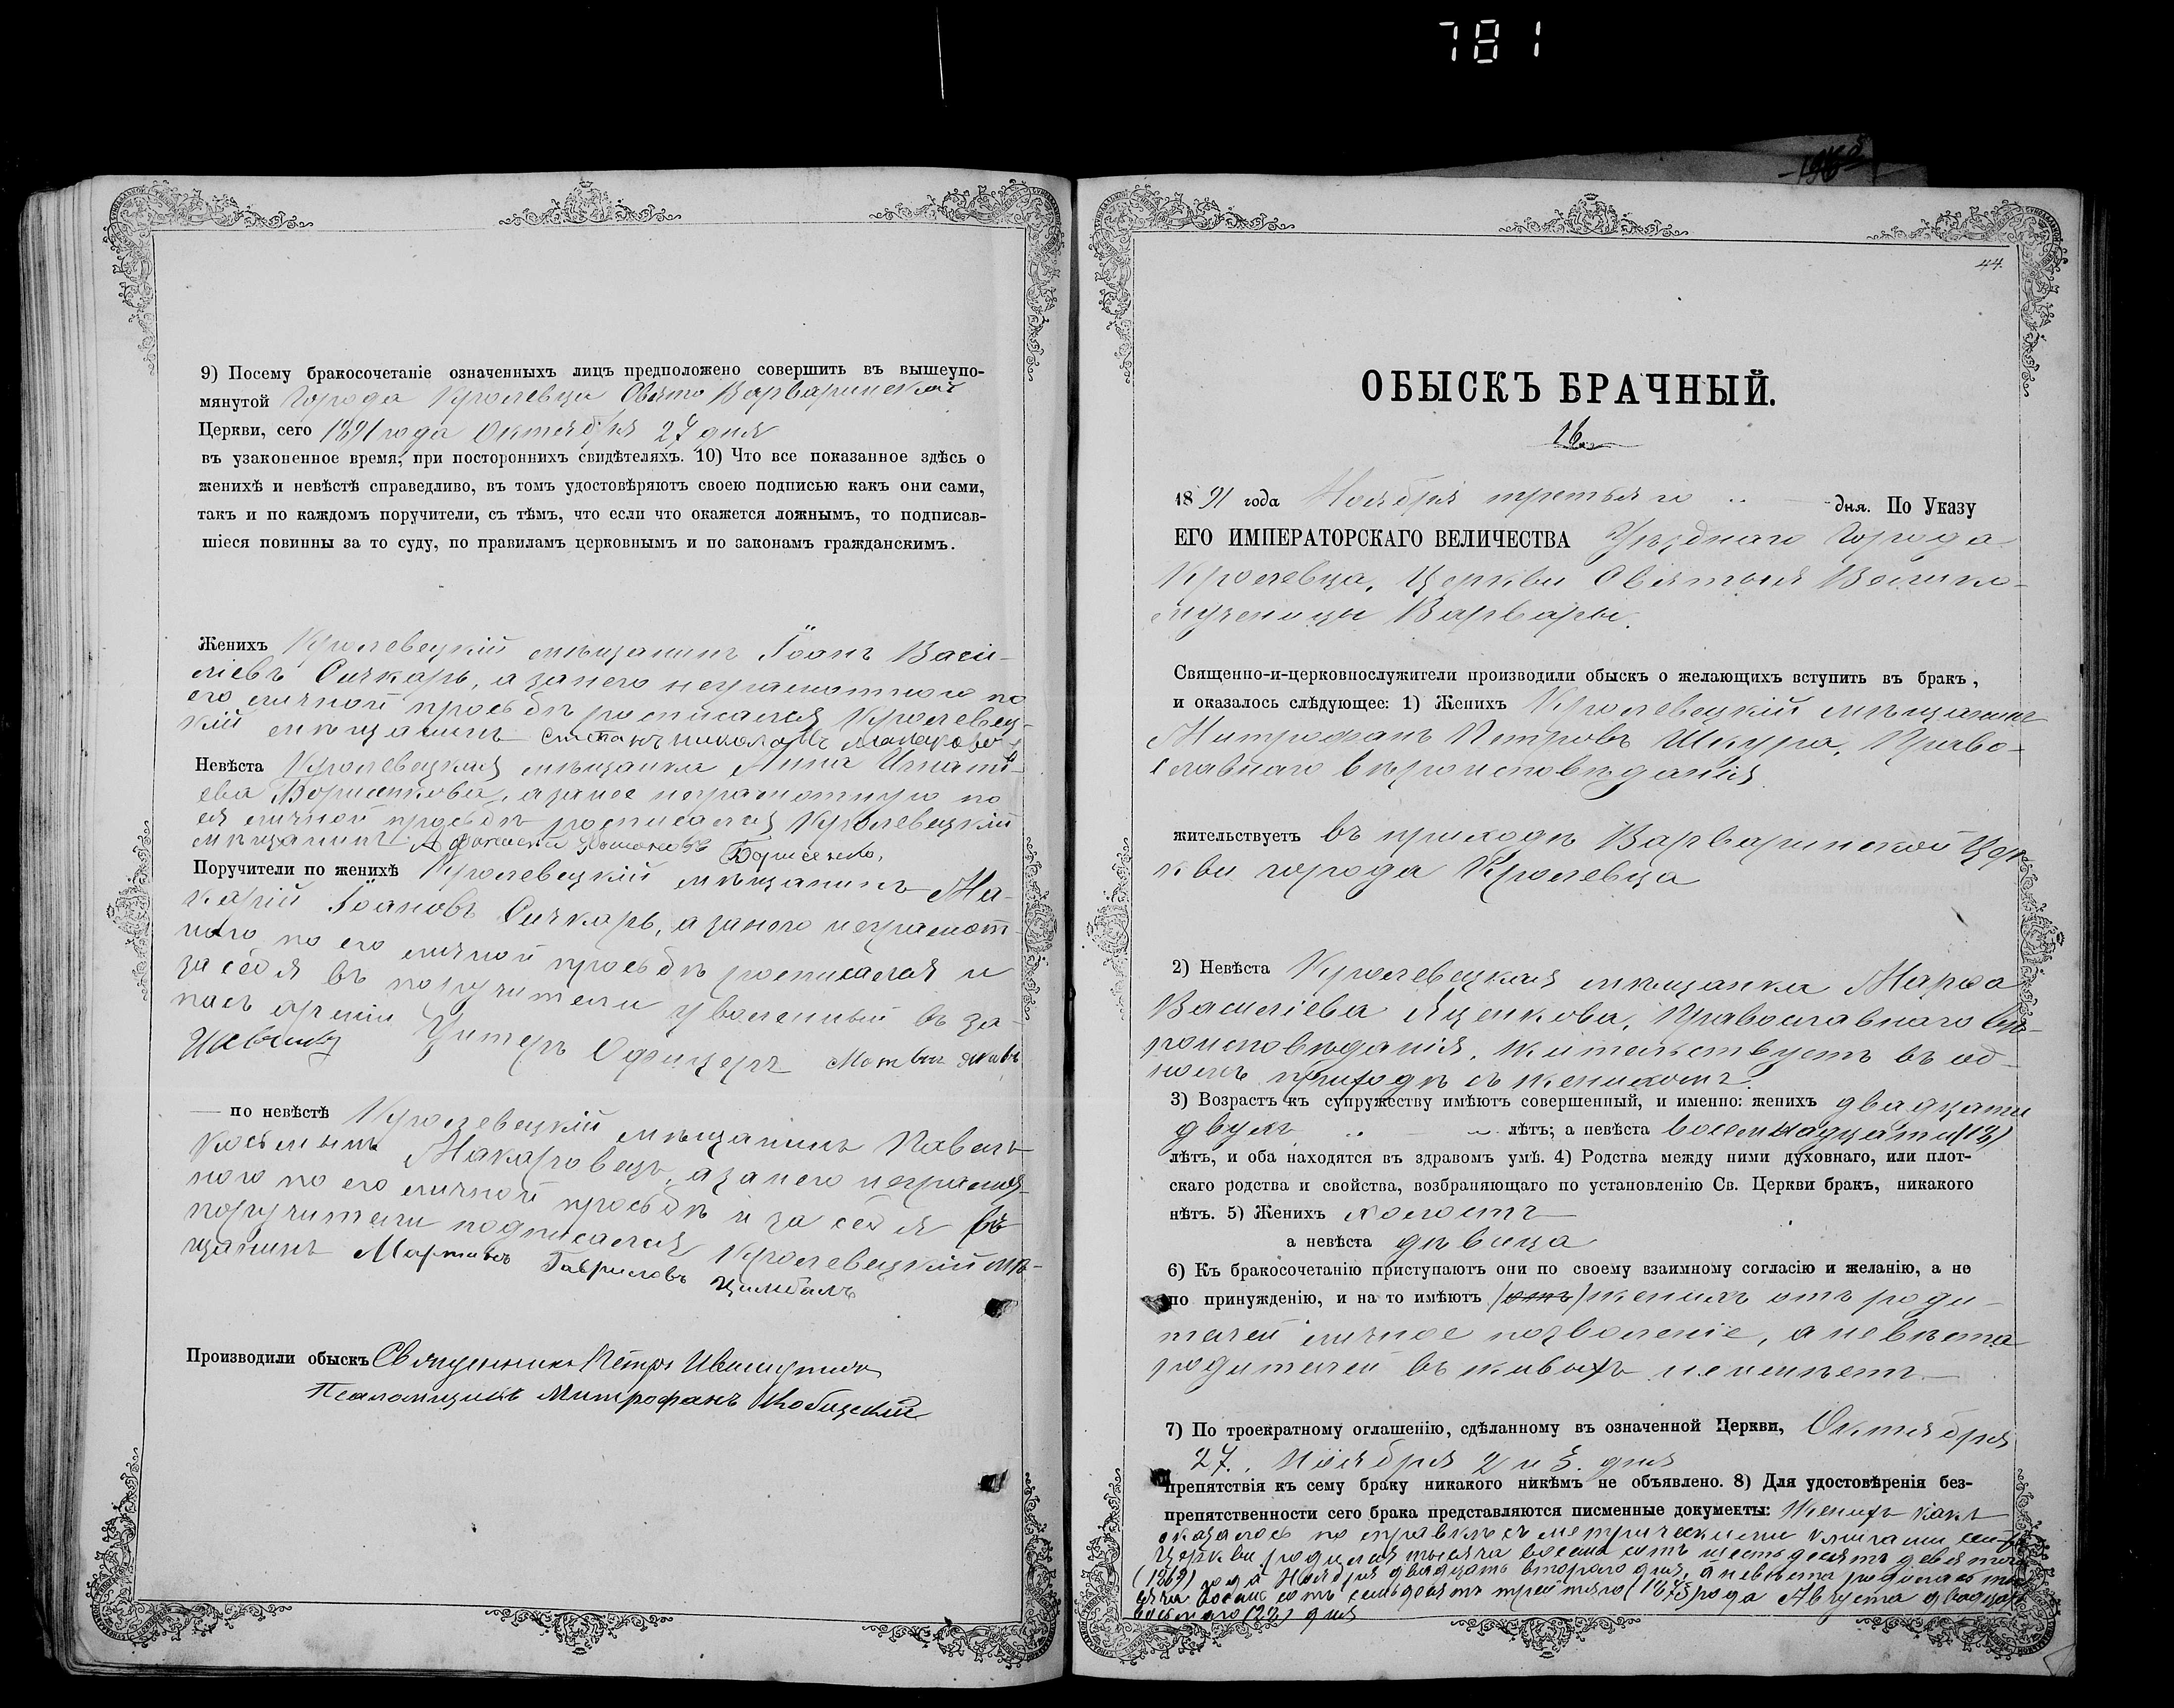 781
9) Посему бракосочетаніе означенныхъ лицъ предположено совершить въ вышеупо-
мянутой Города Кролевца Свято Варваринской
Церкви, сего 1891 года Октября 27 дня
въ узаконенное время, при постороннихъ свидѣтеляхъ. 10) Что все показанное здѣсь о
женихѣ и невѣстѣ справедливо, въ томъ удостовѣряютъ своею подписью какъ они сами,
такъ и по каждомъ поручители, съ тѣмъ, что если что окажется ложнымъ, то подписав-
шіеся повинны за то суду, по правиламъ церковнымъ и по законамъ гражданскимъ.
Женихъ Кролевецкій мѣщанинъ Іоанъ Васи-
ліевъ Сичкарь, а занего неграмотного по
его личной просьбѣ росписался Кролевец-
кій мѣщанинъ
Невѣста Кролевецкая мѣщанка Анна Игнаті-
ева Борисенкова, а занее неграмотную по
ея личной просьбѣ росписался Кролевецкій
мѣщанинъ Борисенко,
Поручители по женихѣ Кролевецкій мѣщанинъ Ма-
карій Іоановъ Сичкарь, а занего неграмот-
ного по его личной просьбѣ росписался и
за себя въ поручители уволенный въ за-
пасъ арміи Унтеръ Офицеръ
по невѣстѣ Кролевецкій мѣщанинъ Павелъ
Макаровецъ, а занего неграмот-
ного по его личной просьбѣ и за себя въ
поручители подписался Кролевецкій мѣ-
щанинъ Мартинъ Гавриловъ Цимбалъ
Производили обыскъ Священникъ Петръ
Псаломщикъ Митрофанъ
44.
ОБЫСКЪ БРАЧНЫЙ.
16
1891 года Ноября третьяго дня. По Указу
ЕГО ИМПЕРАТОРСКАГО ВЕЛИЧЕСТВА Уѣзднаго Города
Кролевца, Церкви Святыя Велико-
мученицы Варвары.
Священно-и-церковнослужители производили обыскъ о желающихъ вступить въ бракъ,
и оказалось слѣдующее: 1) Женихъ Кролевецкій мѣщанинъ
Митрофанъ Петровъ Шкура, Право-
славнаго вѣроисповѣданія
жительствуетъ въ приходѣ Варваринской Цер
кви города Кролевца
2) Невѣста Кролевецкая мѣщанка Марѳа
Василіева Яценкова, Православнаго вѣ-
роисповѣданія, жительствуетъ въ од-
номъ приходѣ съ женихомъ.
3) Возрастъ къ супружеству имѣютъ совершенный, и именно: женихъ двадцати
двухъ лѣтъ; а невѣста восемнадцати (18)
лѣтъ, и оба находятся въ здравомъ умѣ. 4) Родства между ними духовнаго, или плот-
скаго родства и свойства, возбраняющаго по установленію Св. Церкви бракъ, никакого
нѣтъ. 5) Женихъ холостъ
а невѣста дѣвица
6) Къ бракосочетанію приступаютъ они по своему взаимному согласію и желанію, а не
по принужденію, и на то имѣютъ (отъ) женихъ отъ роди-
телей личное позволеніе, а невѣста
родителей въ живыхъ неимѣетъ
7) По троекратному оглашенію, сдѣланному въ означенной Церкви, Октября
27. Ноября 2 и 3. дня
препятствія къ сему браку никакого никѣмъ не объявлено. 8) Для удостовѣренія без-
препятственности сего брака представляются писменные документы: Женихъ какъ
оказалось по справкѣ съ метрическими книгами сей
Церкви родился тысяча восемь сотъ шестьдесятъ девятого
(1869) года Ноября двадцать второго дня, а невѣста родилась ты
сяча восемь сотъ семьдесятъ третьяго (1873) года Августа двадцать
восьмаго (28) дня